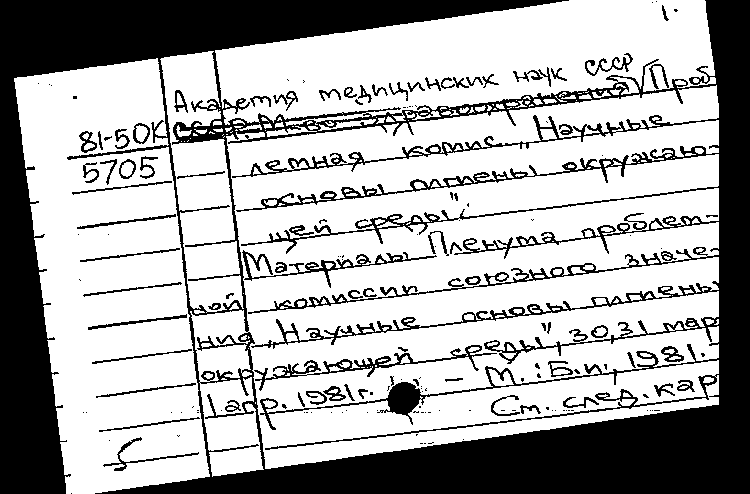 1.
Академия медицинских наук СССР
81-50К СССР. М-во здравоохранения Проб
5705 лемная комис. „Научные
основы гигиены окружаю-
щей среды".
Материалы Пленума проблем-
ной комиссии союзного значе-
ния „Научные основы гигиены
окружающей среды", 30,31 мар
1 апр. 1981г. – М.: Б.и., 1981.
См. след. кар